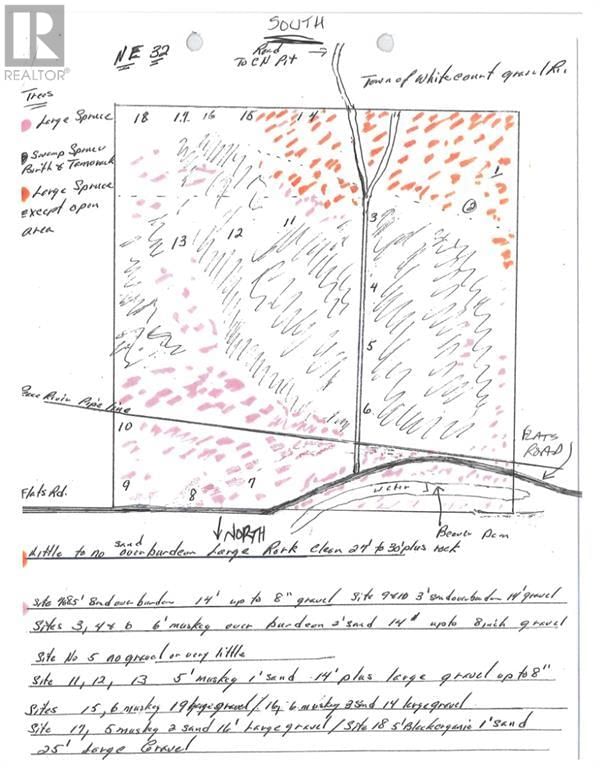 SOUTH
R
REALTOR®
NE 32
Road
To CN Pit
Town of Whitecourt gravel
Trees
Large Spruce
Swamp Spruce
Large Spruce
except open
area
18 17 16 15 14
1
2
3
11
12
13
4
5
6
Pipe line
10
FLATS
ROAD
9
8
7
Flats Rd.
water
NORTH
Beaver Dam
sand
Little to no overburden Large Rock Clean 27' to 30' plus rock
14' up to 8" gravel Site 9&10 3' sand overburden 14' gravel
Sites 3, 4 & 6 6' muskey over burdeon 2' sand 14' upto 8 inch gravel
Site No 5 no gravel or very little
Site 11, 12, 13 5' muskey 1' sand 14' plus large gravel up to 8"
Sites 15, 6 muskey 19 large gravel / 16, 6 muskey 2 sand 14 large gravel
Site 17, 5 muskey 2 sand 16' Large gravel / Site 18 5' Blackorganic 1' sand
25' Large Gravel